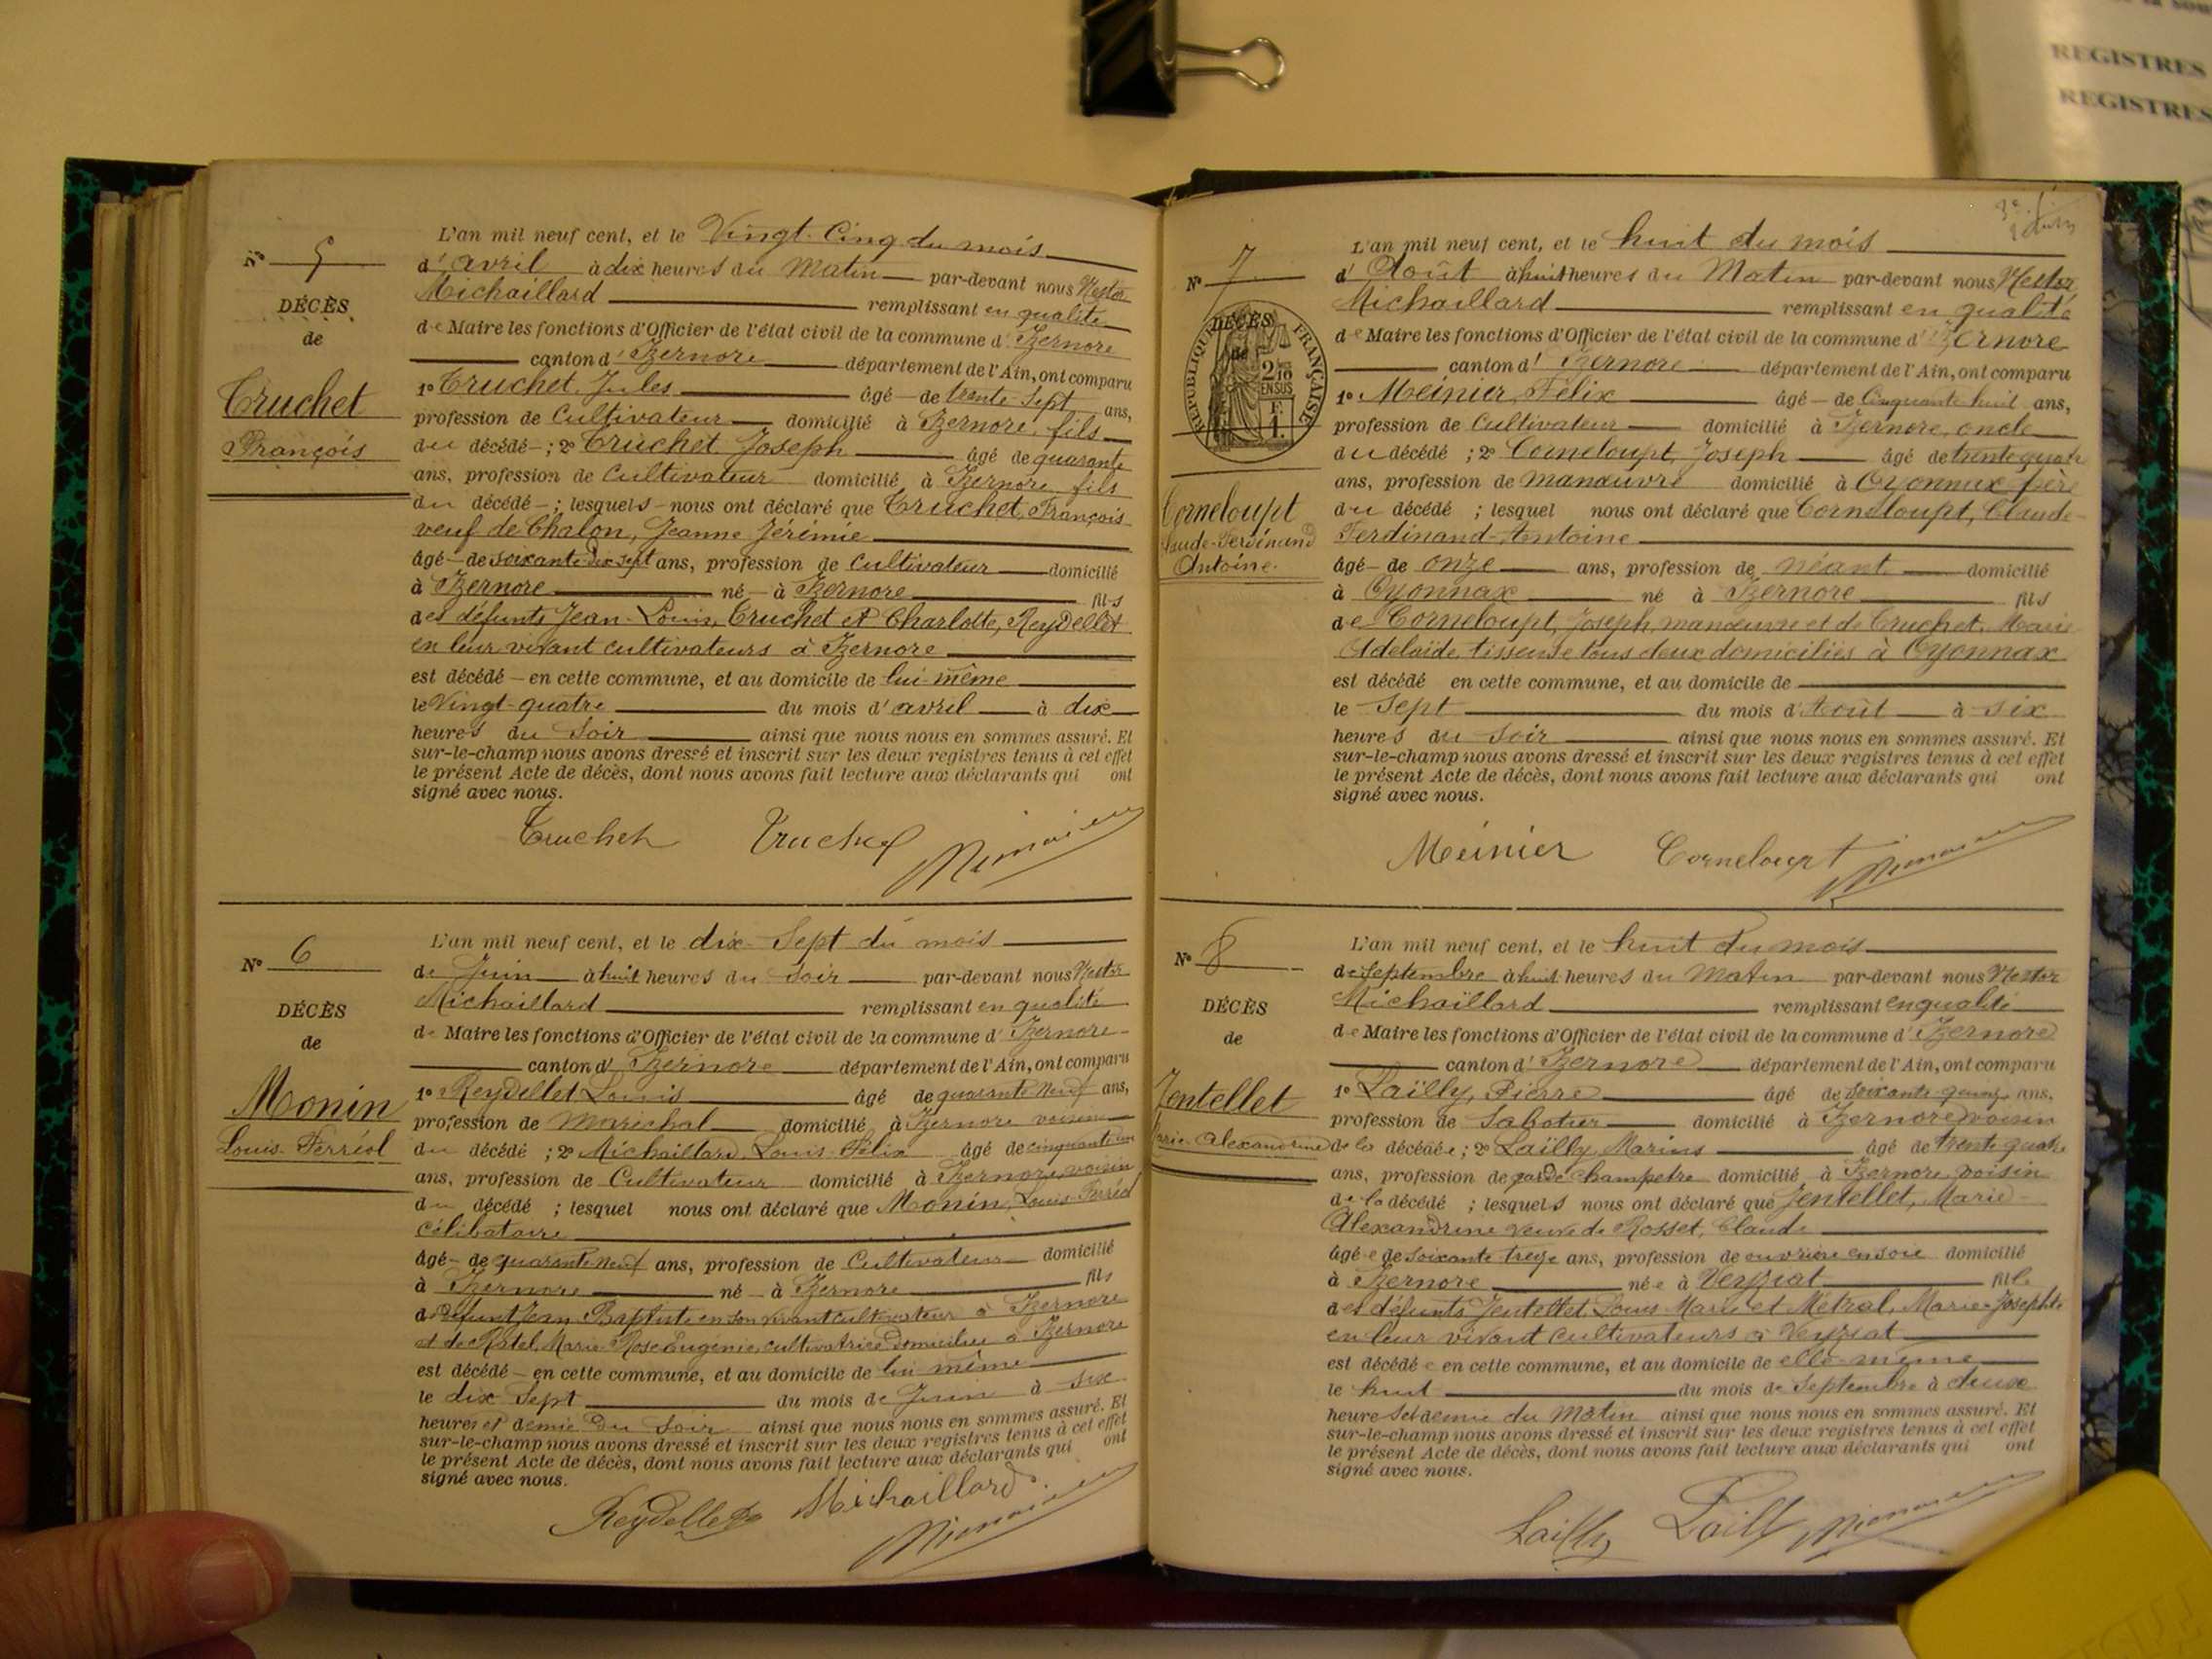 N° 5
DÉCÈS
de
Truchet
François
L'an mil neuf cent, et le Vingt-Cinq du mois
d'avril à dix heures du Matin par-devant nous Nestor
Michaillard remplissant en qualité
de Maire les fonctions d'Officier de l'état civil de la commune d'Izernore
canton d'Izernore département de l'Ain, ont comparu
1° Truchet, Jules âgé de trente-sept ans,
profession de Cultivateur domicilié à Izernore, fils
du décédé ; 2° Truchet, Joseph âgé de quarante
ans, profession de Cultivateur domicilié à Izernore fils
du décédé ; lesquels nous ont déclaré que Truchet, François
veuf de Chalon, Jeanne Jérémie
âgé de soixante-dix-sept ans, profession de Cultivateur domicilié
à Izernore né à Izernore fils
des défunts Jean-Louis, Truchet et Charlotte, Reydellet
en leur vivant cultivateurs à Izernore
est décédé en cette commune, et au domicile de lui-même
le Vingt-quatre du mois d'avril à dix
heures du Soir ainsi que nous nous en sommes assuré. Et
sur-le-champ nous avons dressé et inscrit sur les deux registres tenus à cet effet
le présent Acte de décès, dont nous avons fait lecture aux déclarants qui ont
signé avec nous.
Truchet Truchet
N° 6
DÉCÈS
de
Monin
Louis-Ferréol
L'an mil neuf cent, et le dix-Sept du mois
de Juin à huit heures du Soir par-devant nous Nestor
Michaillard remplissant en qualité
de Maire les fonctions d'Officier de l'état civil de la commune d'Izernore
canton d'Izernore département de l'Ain, ont comparu
1° Reydellet Louis âgé de quarante neuf ans,
profession de Maréchal domicilié à Izernore voisin
du décédé ; 2° Michaillard, Louis-Félix âgé de cinquante un
ans, profession de Cultivateur domicilié à Izernore, voisin
du décédé ; lesquel nous ont déclaré que Monin, Louis-Ferréol
célibataire
âgé de quarante-neuf ans, profession de Cultivateur domicilié
à Izernore né à Izernore fils
de défunt Jean-Baptiste en son vivant cultivateur à Izernore
et de Ratel, Marie Rose Eugénie cultivatrice domiciliée à Izernore
est décédé en cette commune, et au domicile de lui-même
le dix-Sept du mois de Juin à six
heures et demie du Soir ainsi que nous nous en sommes assuré. Et
sur-le-champ nous avons dressé et inscrit sur les deux registres tenus à cet effet
le présent Acte de décès, dont nous avons fait lecture aux déclarants qui ont
signé avec nous.
Reydellet Michaillard
N° 7
DÉCÈS
de
RÉPUBLIQUE FRANÇAISE
2/10
EN SUS
F.
1.
Corneloupt
Claude-Ferdinand
Antoine
L'an mil neuf cent, et le huit du mois
d'Août à huit heures du Matin par-devant nous Nestor
Michaillard remplissant en qualité
de Maire les fonctions d'Officier de l'état civil de la commune d'Izernore
canton d'Izernore département de l'Ain, ont comparu
1° Meinier, Félix âgé de Cinquante-huit ans,
profession de Cultivateur domicilié à Izernore, oncle
du décédé ; 2° Corneloupt, Joseph âgé de trente quatre
ans, profession de manœuvre domicilié à Oyonnax père
du décédé ; lesquel nous ont déclaré que Corneloupt, Claude-
Ferdinand-Antoine
âgé de onze ans, profession de néant domicilié
à Oyonnax né à Izernore fils
de Corneloupt, Joseph, manœuvre et de Truchet, Marie
Adelaïde, tisseuse tous deux domiciliés à Oyonnax
est décédé en cette commune, et au domicile de
le Sept du mois d'Août à six
heures du Soir ainsi que nous nous en sommes assuré. Et
sur-le-champ nous avons dressé et inscrit sur les deux registres tenus à cet effet
le présent Acte de décès, dont nous avons fait lecture aux déclarants qui ont
signé avec nous.
Meinier Corneloupt
N° 8
DÉCÈS
de
Jentellet
Marie-Alexandrine
L'an mil neuf cent, et le huit du mois
de Septembre à huit heures du Matin par-devant nous Nestor
Michaïllard remplissant en qualité
de Maire les fonctions d'Officier de l'état civil de la commune d'Izernore
canton d'Izernore département de l'Ain, ont comparu
1° Laïlly, Pierre âgé de soixante-quinze ans,
profession de Sabotier domicilié à Izernore voisin
de la décédée ; 2° Laïlly, Marius âgé de trente-quatre
ans, profession de garde champetre domicilié à Izernore, voisin
de la décédé ; lesquels nous ont déclaré que Jentellet, Marie-
Alexandrine veuve de Rosset, Claude
âgée de soixante-treize ans, profession de ouvrière en soie domicilié
à Izernore née à Veyziat fille
des défunts Jentellet, Louis-Marie et Métral, Marie-Josephte
en leur vivant cultivateurs à Veyziat
est décédée en cette commune, et au domicile de elle-même
le huit du mois de Septembre à deux
heures et demie du Matin ainsi que nous nous en sommes assuré. Et
sur-le-champ nous avons dressé et inscrit sur les deux registres tenus à cet effet
le présent Acte de décès, dont nous avons fait lecture aux déclarants qui ont
signé avec nous.
Lailly Lailly
REGISTRES
REGISTRES